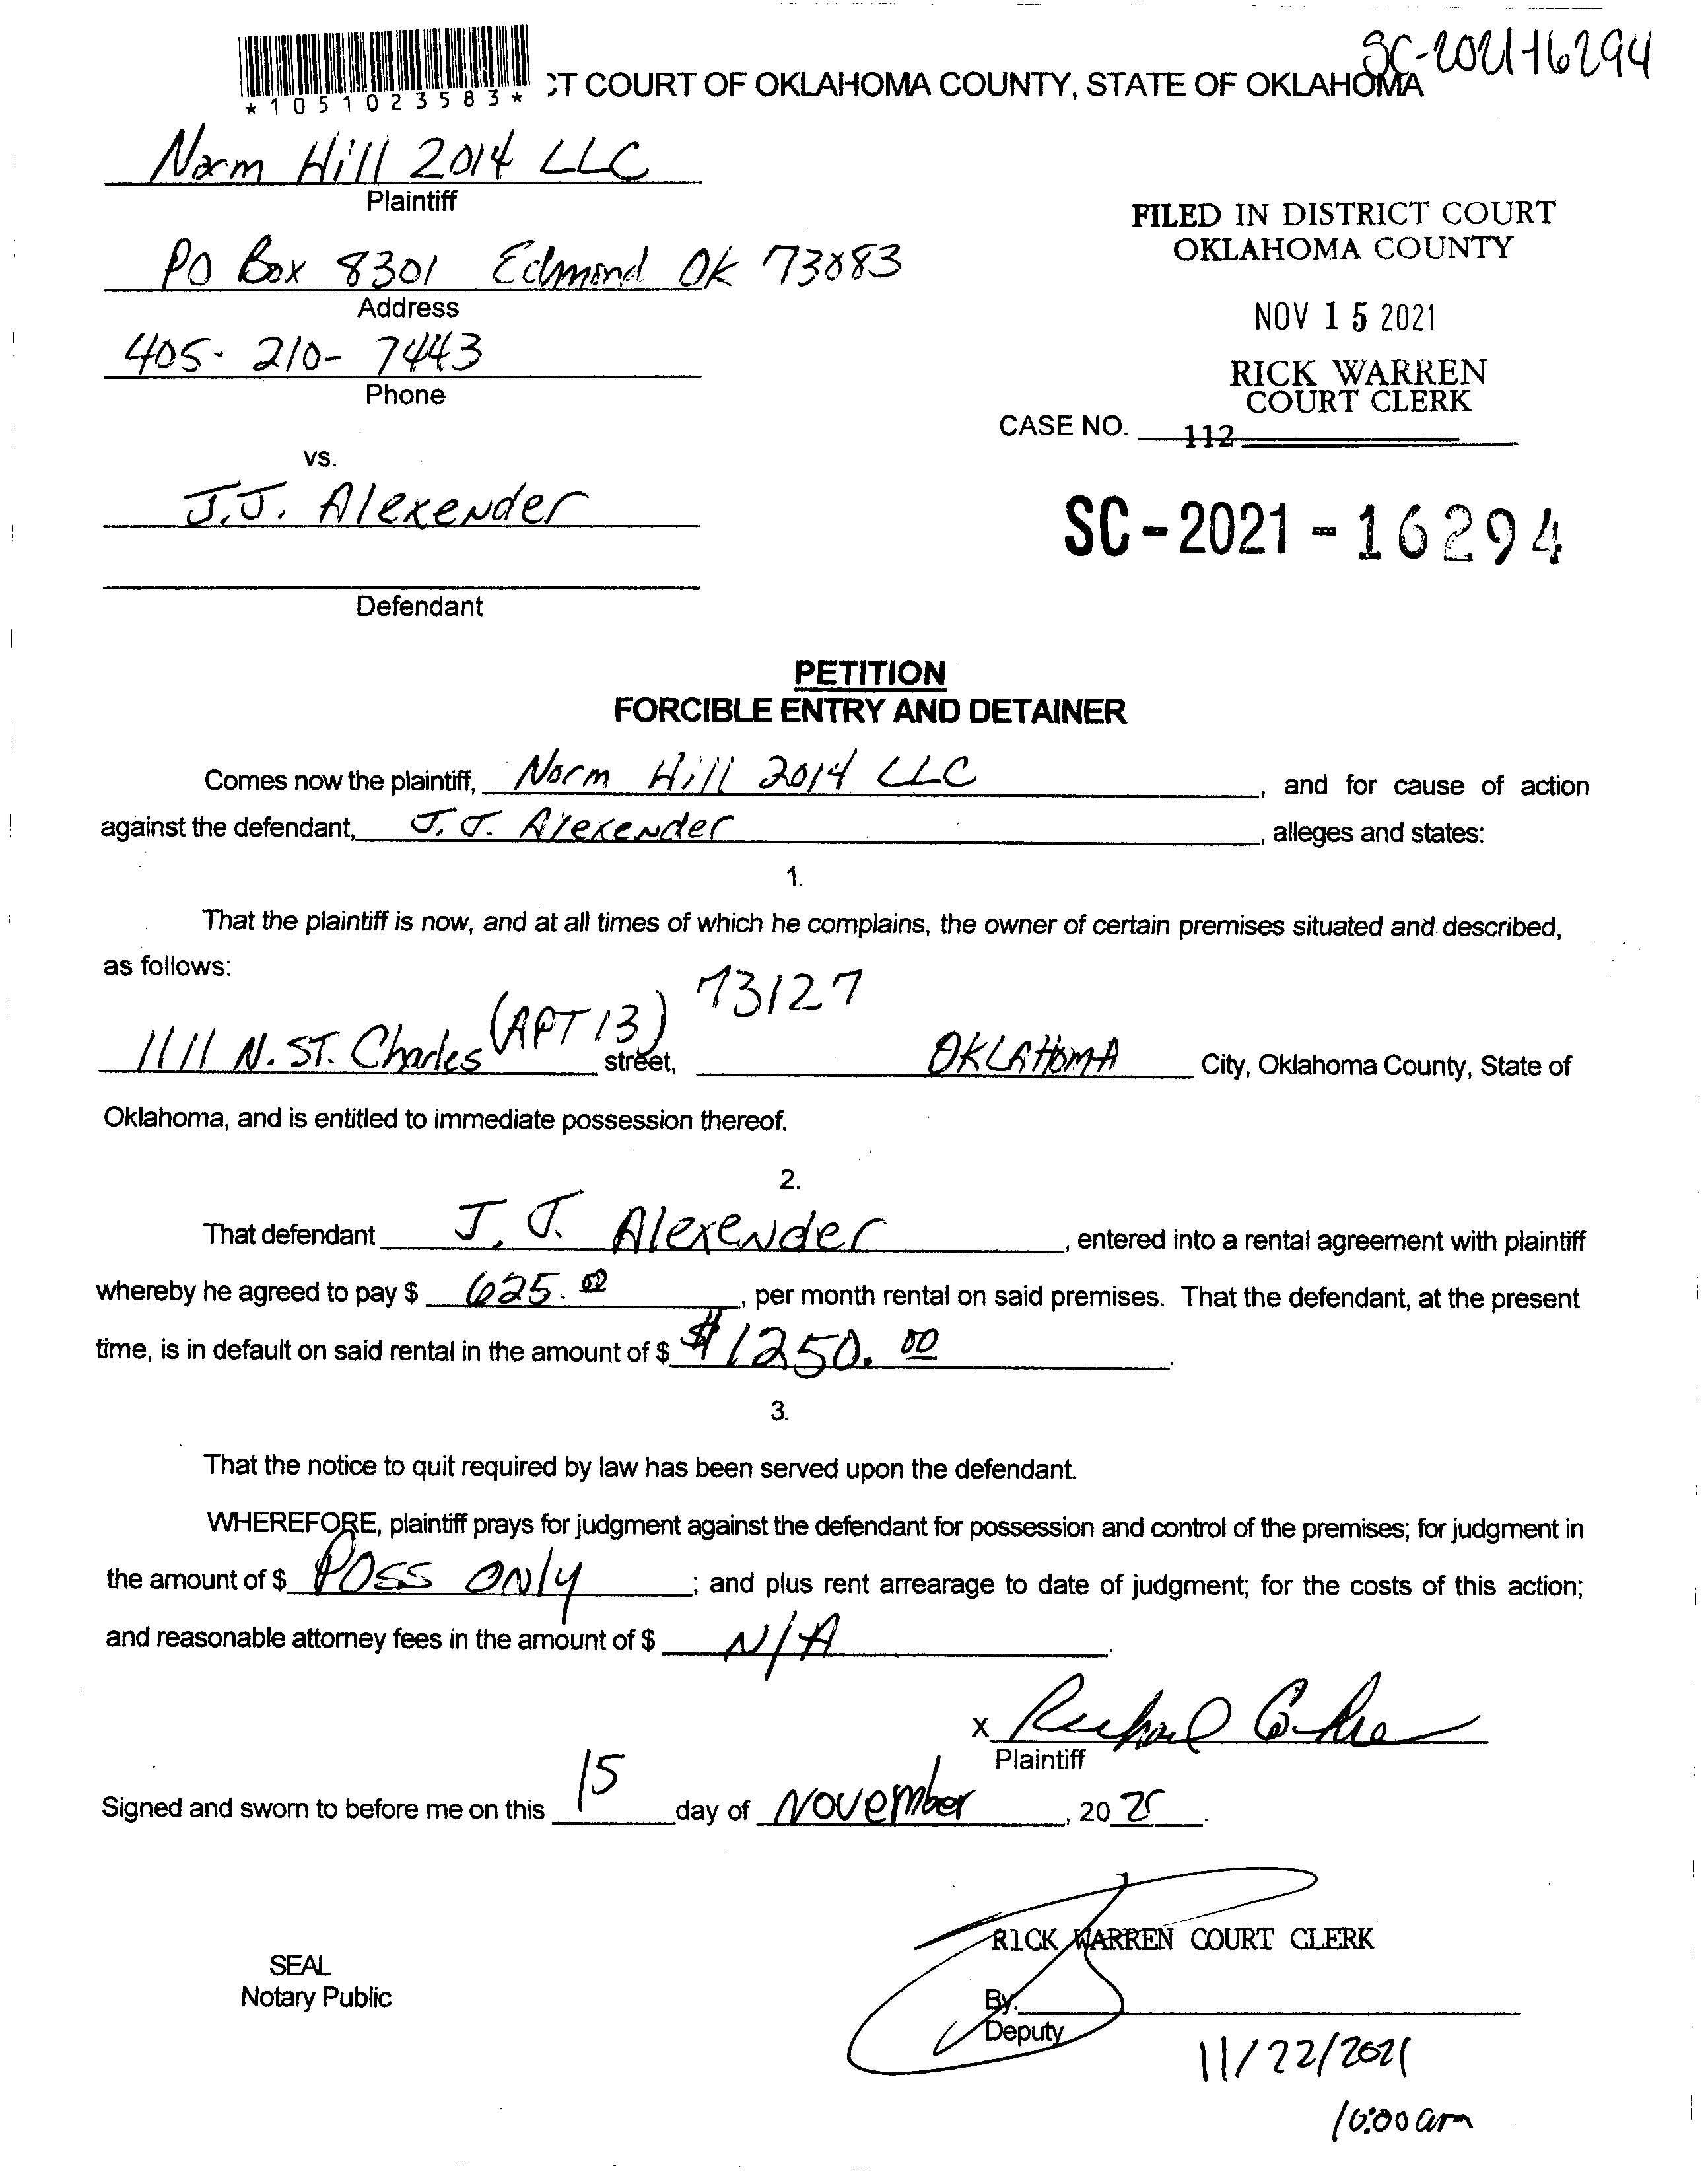 SC-2021-16294
*1051023583*
CT COURT OF OKLAHOMA COUNTY, STATE OF OKLAHOMA
Norm Hill 2014 LLC
Plaintiff
PO Box 8301 Edmond OK 73083
Address
405-210-7443
Phone
FILED IN DISTRICT COURT
OKLAHOMA COUNTY
NOV 15 2021
RICK WARREN
COURT CLERK
CASE NO. 112
vs.
J.J. Alexender
SC-2021-16294
Defendant
PETITION
FORCIBLE ENTRY AND DETAINER
Comes now the plaintiff, Norm Hill 2014 LLC, and for cause of action
against the defendant, J.J. Alexender, alleges and states:
1.
That the plaintiff is now, and at all times of which he complains, the owner of certain premises situated and described,
as follows:
1111 N. ST. Charles (APT 13) street, 73127 OKLAHOMA City, Oklahoma County, State of
Oklahoma, and is entitled to immediate possession thereof.
2.
That defendant J.J. Alexender, entered into a rental agreement with plaintiff
whereby he agreed to pay $ 625.00, per month rental on said premises. That the defendant, at the present
time, is in default on said rental in the amount of $ $1250.00.
3.
That the notice to quit required by law has been served upon the defendant.
WHEREFORE, plaintiff prays for judgment against the defendant for possession and control of the premises; for judgment in
the amount of $ POSS ONly; and plus rent arrearage to date of judgment; for the costs of this action;
and reasonable attorney fees in the amount of $ N/A.
X
Plaintiff
Signed and sworn to before me on this 15 day of November, 20
RICK WARREN COURT CLERK
SEAL
Notary Public
By.
Deputy
11/22/2021
10:00am